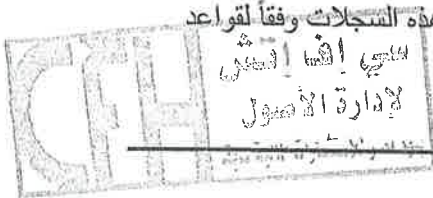 هذه السجلات وفقاً لقواعد
سي إف إتش
لإدارة الأصول
CFH